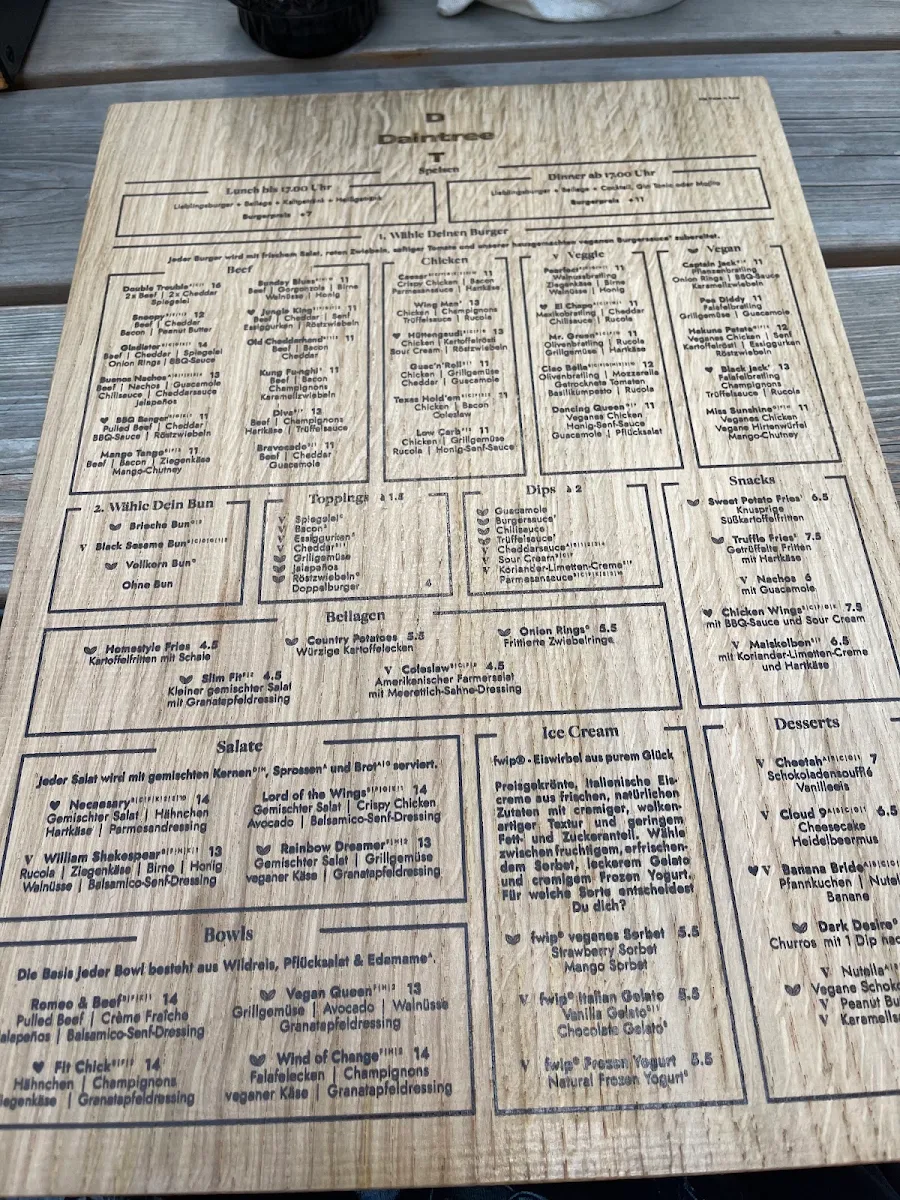 D
Daintree
T
Speisen
Lunch bis 17.00 Uhr
Lieblingsburger + Beilage + Kaltgetränk + Heißgetränk
Burgerpreis +7
Dinner ab 17.00 Uhr
Lieblingsburger + Beilage + Cocktail, Gin Tonic oder Mojito
Burgerpreis +11
1. Wähle Deinen Burger
Jeder Burger wird mit frischem Salat, roten Zwiebeln, saftiger Tomate und unserer hausgemachten veganen Burgersauce zubereitet.
Beef
Double Trouble 16
2x Beef | 2x Cheddar
Spiegelei
Snoopy 12
Beef | Cheddar
Bacon | Peanut Butter
Gladiator 14
Beef | Cheddar | Spiegelei
Onion Rings | BBQ-Sauce
Buenos Nachos 13
Beef | Nachos | Guacamole
Chilisauce | Cheddarsauce
Jalapeños
♥ BBQ Banger 11
Pulled Beef | Cheddar
BBQ-Sauce | Röstzwiebeln
Mango Tango 11
Beef | Bacon | Ziegenkäse
Mango-Chutney
Sunday Blues 11
Beef | Gorgonzola | Birne
Walnüsse | Honig
♥ Jungle King 11
Beef | Cheddar | Senf
Essiggurken | Röstzwiebeln
Old Cheddarhand 11
Beef | Bacon
Cheddar
Kung Fu-nghi 11
Beef | Bacon
Champignons
Karamellzwiebeln
Diva 13
Beef | Champignons
Hartkäse | Trüffelsauce
Bravocado 11
Beef | Cheddar
Guacamole
Chicken
Caesar 11
Crispy Chicken | Bacon
Parmesansauce | Hartkäse
Wing Man 13
Chicken | Champignons
Trüffelsauce | Rucola
♥ Hüttengaudi 13
Chicken | Kartoffelrösti
Sour Cream | Röstzwiebeln
Guac'n'Roll 11
Chicken | Grillgemüse
Cheddar | Guacamole
Texas Hold'em 11
Chicken | Bacon
Coleslaw
Low Carb 11
Chicken | Grillgemüse
Rucola | Honig-Senf-Sauce
V Veggie
Pearfect 11
Walnussbratling
Ziegenkäse | Birne
Walnüsse | Honig
♥ El Chapo 11
Mexikobratling | Cheddar
Chilisauce | Rucola
Mr. Green 11
Olivenbratling | Rucola
Grillgemüse | Hartkäse
Ciao Bella 12
Olivenbratling | Mozzarella
Getrocknete Tomaten
Basilikumpesto | Rucola
Dancing Queen 11
Veganes Chicken
Honig-Senf-Sauce
Guacamole | Pflücksalat
Vegan
Captain Jack 11
Pflanzenbratling
Onion Rings | BBQ-Sauce
Karamellzwiebeln
Pea Diddy 11
Falafelbratling
Grillgemüse | Guacamole
Hakuna Potato 12
Veganes Chicken | Senf
Kartoffelrösti | Essiggurken
Röstzwiebeln
♥ Black Jack 13
Falafelbratling
Champignons
Trüffelsauce | Rucola
Miss Sunshine 11
Veganes Chicken
Vegane Hirtenwürfel
Mango-Chutney
2. Wähle Dein Bun
Brioche Bun
V Black Sesame Bun
Vollkorn Bun
Ohne Bun
Toppings à 1.5
V Spiegelei
V Bacon
V Essiggurken
V Cheddar
Grillgemüse
Jalapeños
Röstzwiebeln
Doppelburger 4
Dips à 2
Guacamole
Burgersauce
Chilisauce
Trüffelsauce
V Cheddarsauce
V Sour Cream
V Koriander-Limetten-Creme
Parmesansauce
Snacks
Sweet Potato Fries 6.5
Knusprige
Süßkartoffelfritten
Truffle Fries 7.5
Getrüffelte Fritten
mit Hartkäse
V Nachos 6
mit Guacamole
♥ Chicken Wings 7.5
mit BBQ-Sauce und Sour Cream
V Maiskolben 6.5
mit Koriander-Limetten-Creme
und Hartkäse
Beilagen
Homestyle Fries 4.5
Kartoffelfritten mit Schale
Country Potatoes 5.5
Würzige Kartoffelecken
Onion Rings 5.5
Frittierte Zwiebelringe
Slim Fit 4.5
Kleiner gemischter Salat
mit Granatapfeldressing
V Coleslaw 4.5
Amerikanischer Farmersalat
mit Meerettich-Sahne-Dressing
Salate
Jeder Salat wird mit gemischten Kernen, Sprossen und Brot serviert.
♥ Necaesary 14
Gemischter Salat | Hähnchen
Hartkäse | Parmesandressing
Lord of the Wings 14
Gemischter Salat | Crispy Chicken
Avocado | Balsamico-Senf-Dressing
V William Shakespear 13
Rucola | Ziegenkäse | Birne | Honig
Walnüsse | Balsamico-Senf-Dressing
Rainbow Dreamer 13
Gemischter Salat | Grillgemüse
veganer Käse | Granatapfeldressing
Bowls
Die Basis jeder Bowl besteht aus Wildreis, Pflücksalat & Edamame.
Romeo & Beef 14
Pulled Beef | Crème Fraîche
alapeños | Balsamico-Senf-Dressing
Vegan Queen 13
Grillgemüse | Avocado | Walnüsse
Granatapfeldressing
♥ Fit Chick 14
Hähnchen | Champignons
iegenkäse | Granatapfeldressing
Wind of Change 14
Falafelecken | Champignons
veganer Käse | Granatapfeldressing
Ice Cream
fwip® - Eiswirbel aus purem Glück
Preisgekrönte, italienische Eis-
creme aus frischen, natürlichen
Zutaten mit cremiger, wolken-
artiger Textur und geringem
Fett- und Zuckeranteil. Wähle
zwischen fruchtigem, erfrischen-
dem Sorbet, leckerem Gelato
und cremigem Frozen Yogurt.
Für welche Sorte entscheidest
Du dich?
fwip® veganes Sorbet 5.5
Strawberry Sorbet
Mango Sorbet
V fwip® Italian Gelato 5.5
Vanilla Gelato
Chocolate Gelato
V fwip® Frozen Yogurt 5.5
Natural Frozen Yogurt
Desserts
V Cheetah 7
Schokoladensoufflé
Vanilleeis
V Cloud 9 6.5
Cheesecake
Heidelbeermus
♥ V Banana Bride
Pfannkuchen | Nutel
Banane
Dark Desire
Churros mit 1 Dip nac
V Nutella
Vegane Schoko
V Peanut Bu
V Karamells